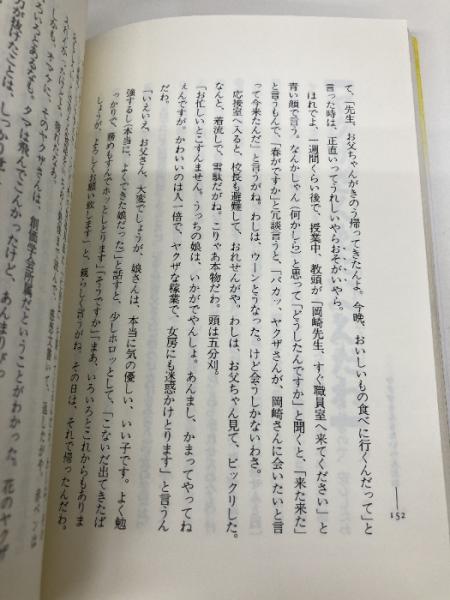 て、「先生、お父ちゃんがきのう帰ってきたんよ。今晩、おいしいもの食べに行くんだって」と
言った時は、正直いってうれしいやらおそがいやら。
はれでよ、一週間くらい後で、授業中、教頭が「岡崎先生、すぐ職員室へ来てください」と
青い顔で言う。なんかしゃん（何かしら）と思って「どうしたんですか」と聞くと、「来た来た」
と言うもんで、「春がですか」と冗談言うと、「バカッ、ヤクザさんが、岡崎さんに会いたいと言
って今来たんだ」と言うがね。わしは、ウーンとうなった。けど会うしかないわさ。
応接室へ入ると、校長も避難して、おれせんがや。わしは、お父ちゃん見て、ビックリした。
なんと、着流しで、雪駄だがね。こりゃあ本物だわ。頭は五分刈。
「お忙しいとこすんません。うっちの娘は、いかがでやんしょ。あんまし、かまってやってね
えんですが。かわいいのは人一倍で、ヤクザな稼業で、女房にも迷惑かけとります」と言うん
だわ。
「いいえ、お父さん、大変でしょうが、娘さんは、本当に気の優しい、いい子です。よく勉
強するし（本当に、よくできた娘だった）」と話すと、少しホロッとして、「こないだ出てきたば
っかりで、務めもすんどりません
しょうが、よろしくお願い致します」と、鏡らしく言うがね。その日は、それで帰ったんだわ。
そのヤクザさんは、創価学会所属だということがわかった。花のヤクザ
タマは飛んでこんかったけど、あんまりびっ
力が抜けたことは、しっかり
152